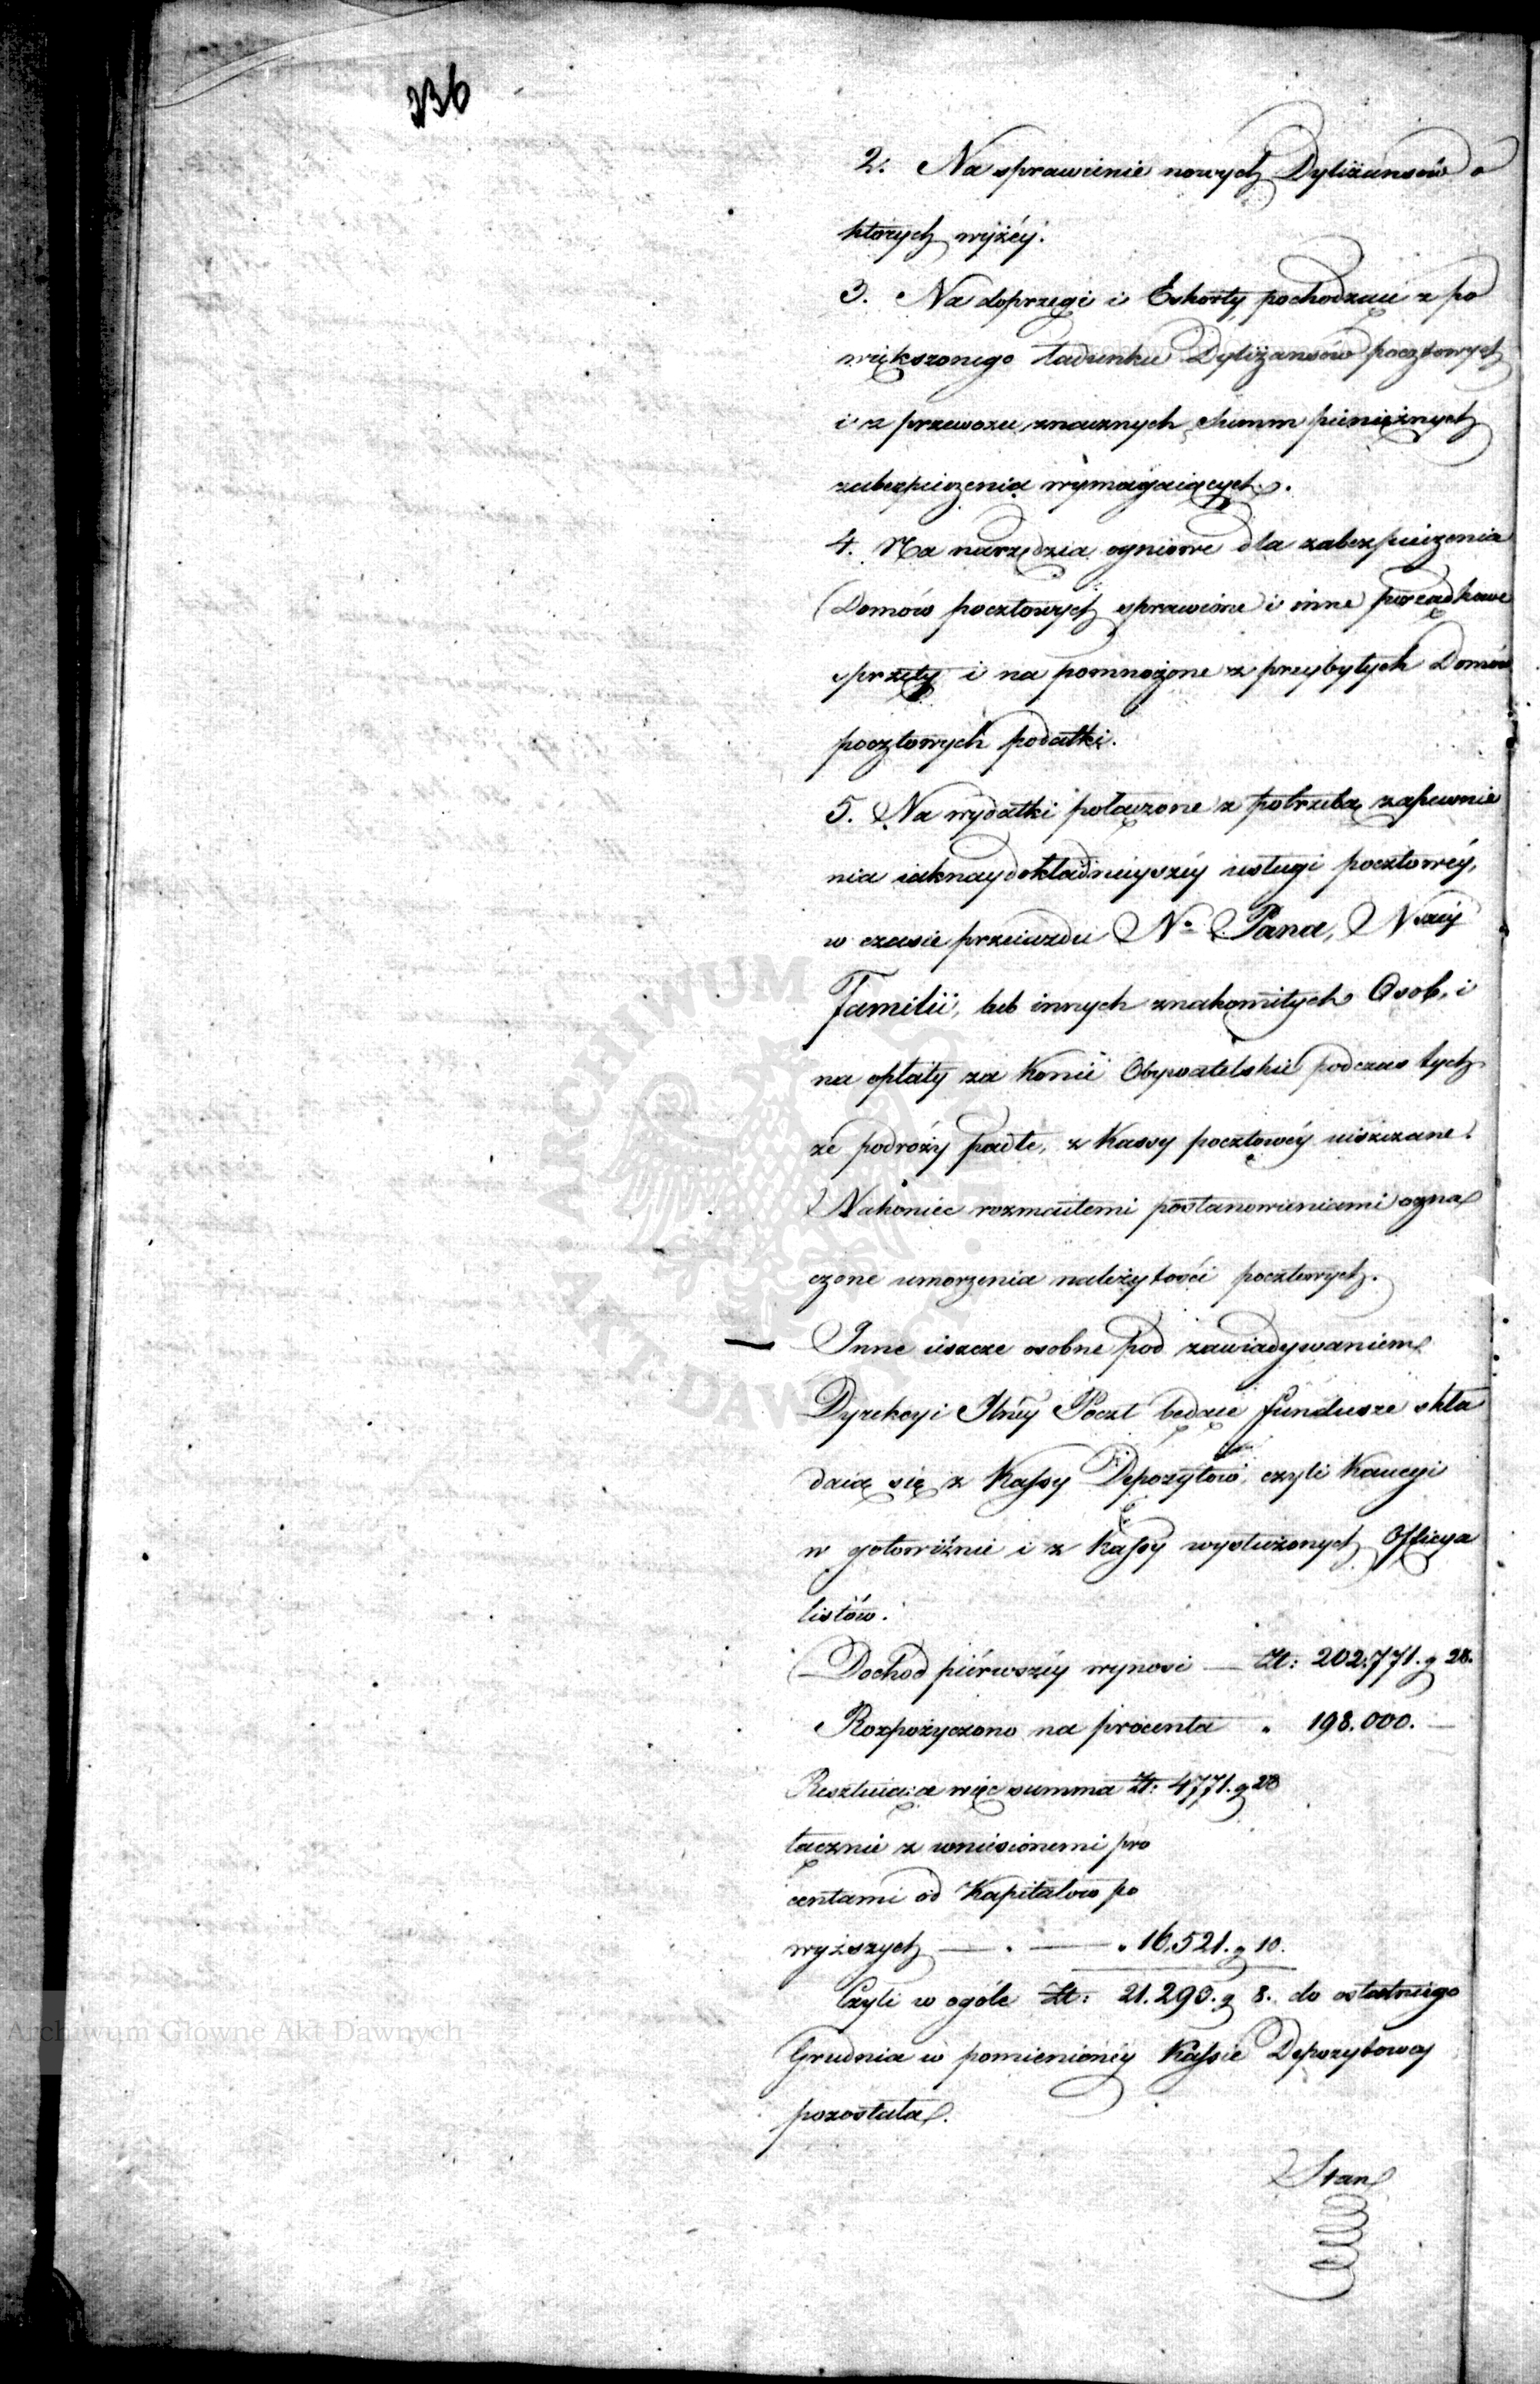 236
2. Na sprawienie nowych Dyliżansów o
których wyżéy.
3. Na doprzęgi i Eskorty pochodzące z po
większonego ładunku Dyliżansów pocztowych
i z przewozu znacznych Summ pieniężnych
zabezpieczenia wymagaiących.
4. Na narzędzia ogniowe dla zabezpieczenia
Domów pocztowych sprawione i inne porządkowe
sprzęty i na pomnożone z przybytych Domów
pocztowych podatki.
5. Na wydatki połączone z potrzebą zapewnie
nia iaknaydokładnieyszéy usługi pocztowéy,
w czasie przeiazdu N° Pana, Nszéy
Familii, lub innych znakomitych Osob, i
na opłaty za Konie Obywatelskie podczas tych
że podróży padłe, z Kassy pocztowéy uiszczane.
Nakoniec rozmaitemi postanowieniami ozna
czone umorzenia należytości pocztowych.
Inne ieszcze osobne pod zawiadywaniem
Dyrekcyi Jlnéy Poczt będące fundusze skła
daią się z Kassy Depozytów, czyli Kaucyi
w gotowiźnie i z Kassy wysłużonych Officya
listów.
Dochod piérwszéy wynosi — Zł: 202.771. g 28.
Rozpożyczono na procenta " 198.000. —
Resztuiąca więc summa Zł: 4771. g 28
łącznie z wniesionemi pro
centami od Kapitałow po
wyższych — . — " 16,521. g 10.
Czyli w ogóle Zł: 21.293. g 8. do ostatniego
Grudnia w pomienionéy Kassie Depozytowéy
pozostała.
Stan
ARCHIWUM GŁÓWNE AKT DAWNYCH
Archiwum Główne Akt Dawnych